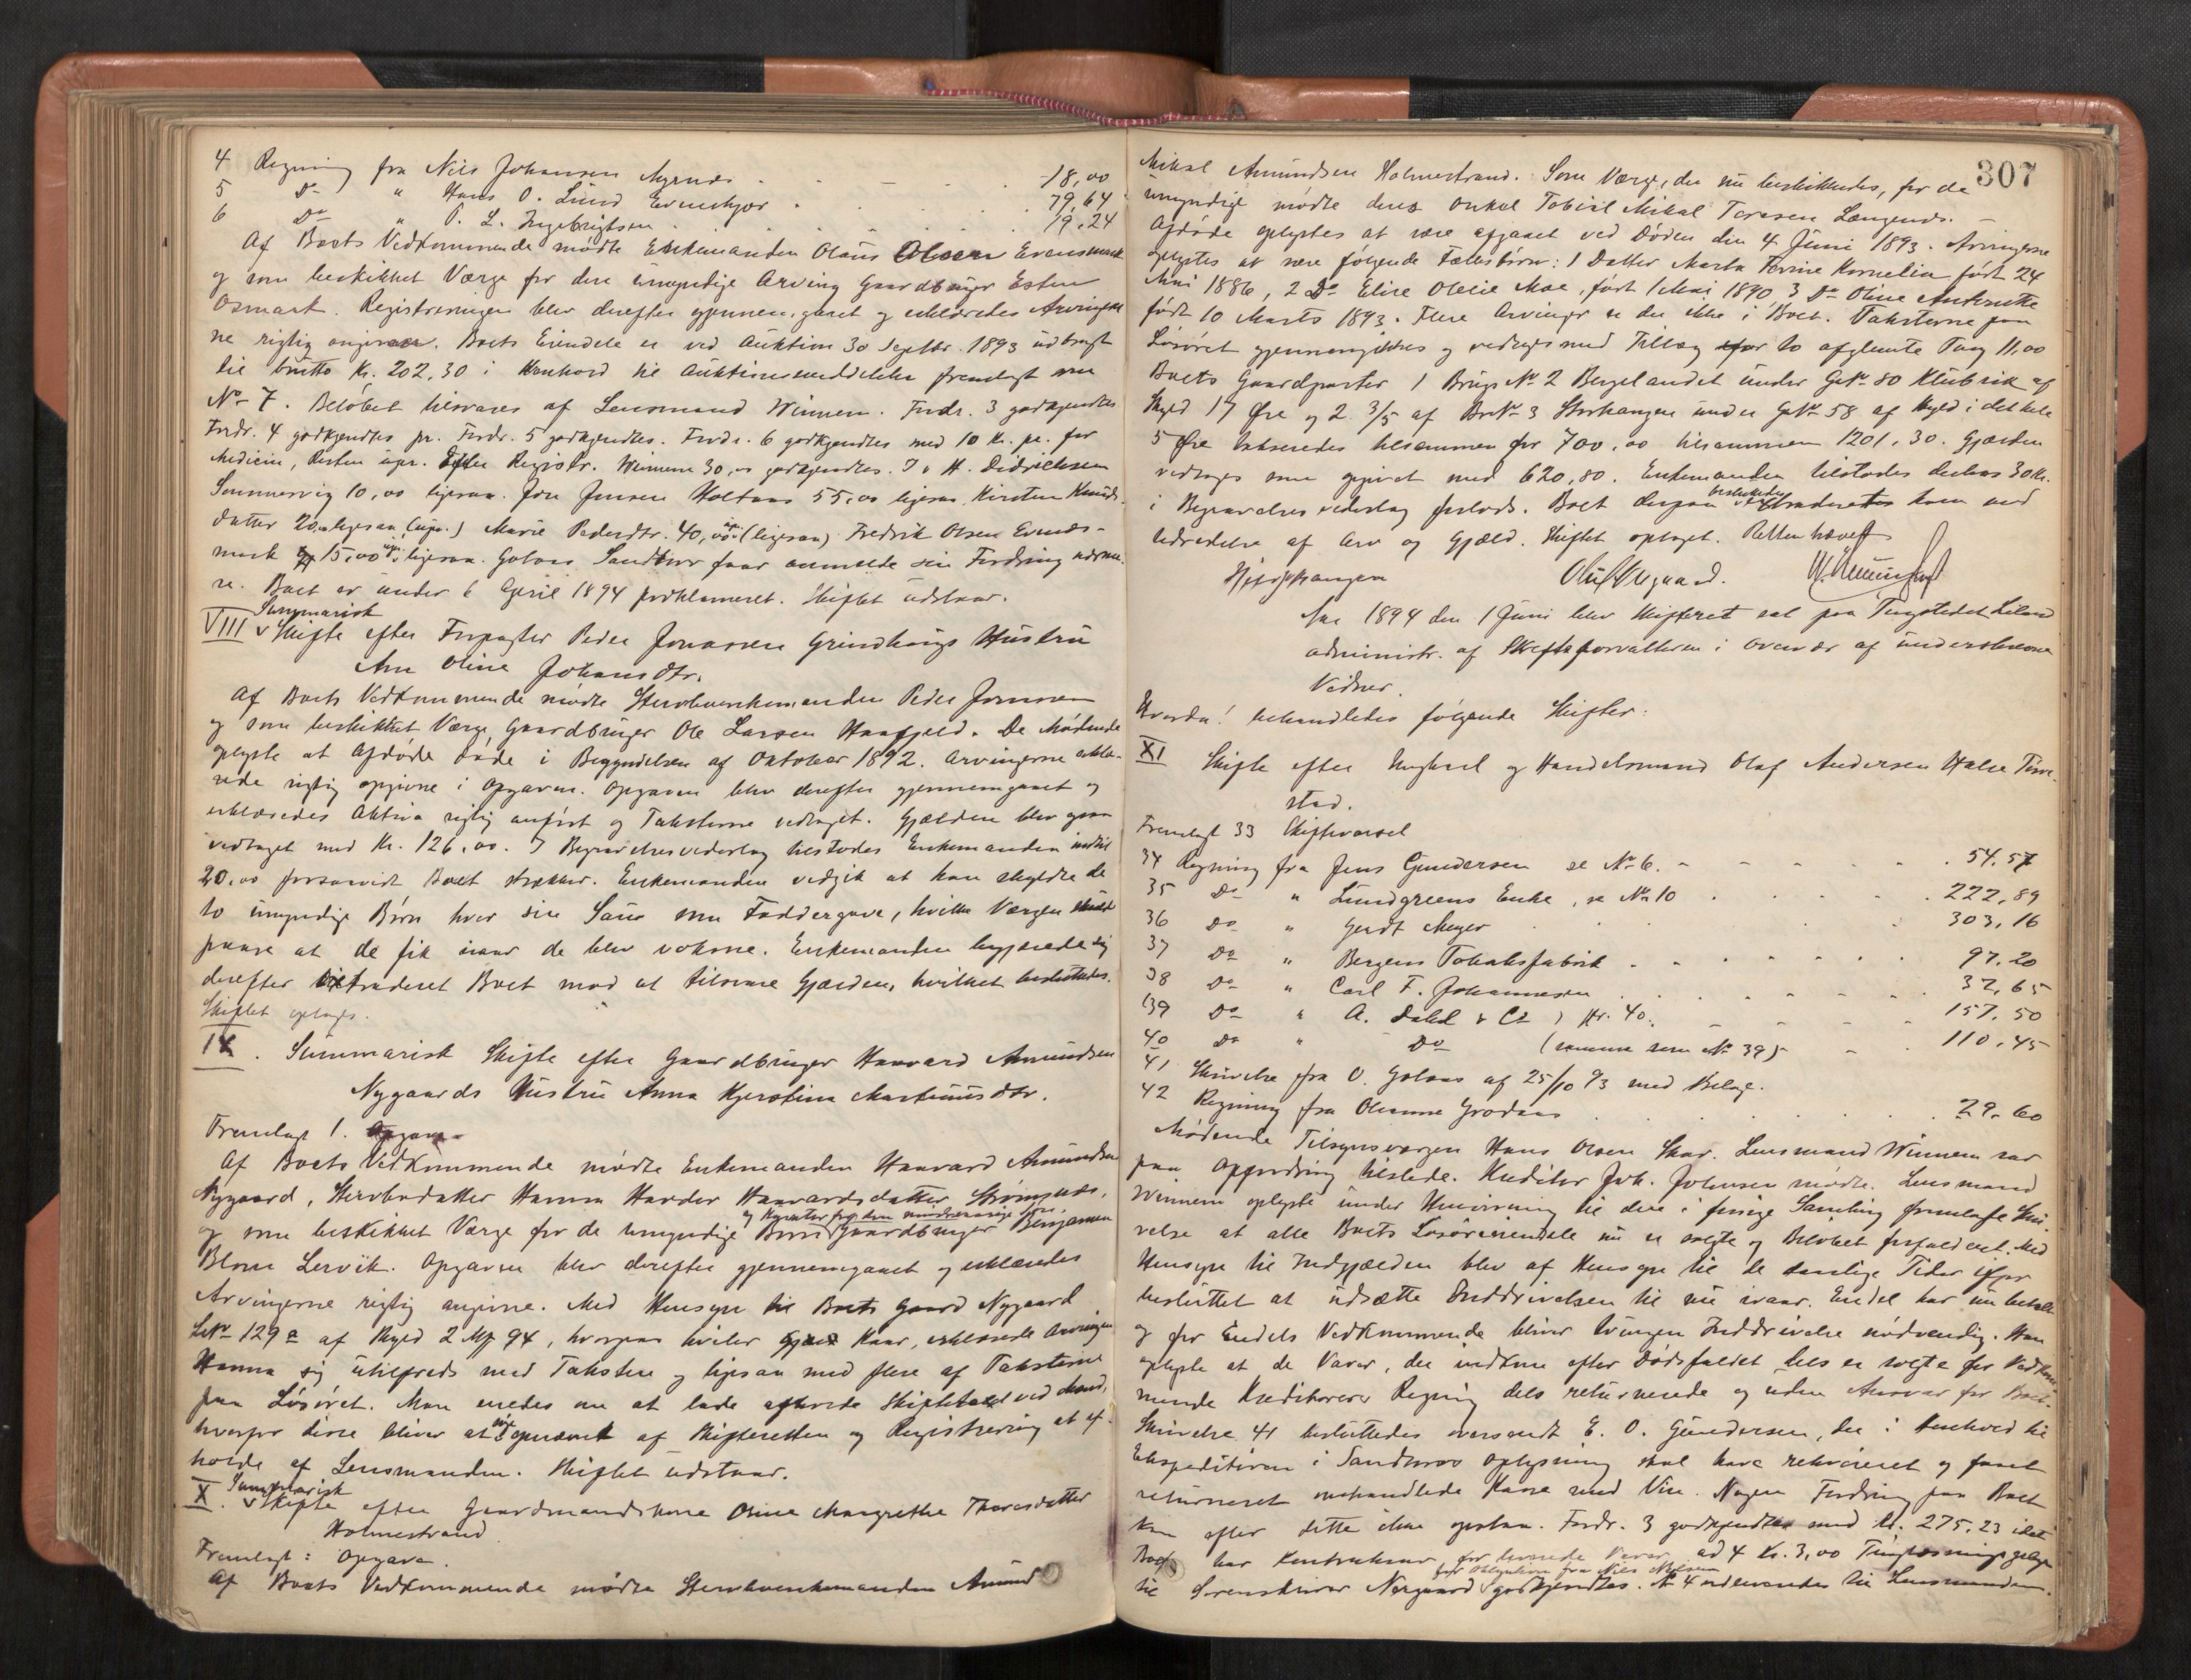 4 Regning fra Nils Johansen Myrnes 18,00
5 Do " Hans O. Lund Evenskjær 79,64
6 Do " O. L. Ingebrigtsen 19,24
Af Boets Vedkommende mødte Enkemanden Olaus Olsen Evensmark
og som beskikket Værge for den umyndige Arving Gaardbruger Esten
Osmark. Registreringen blev derefter gjennemgaaet og erklæredes Arvinger-
ne rigtig angivne. Boets Eiendele er ved Auktion 30 Septbr. 1893 udbragt
til brutto Kr. 202,30 i Henhold til Auktionsmeddelelse fremlagt som
No 7. Beløbet tilsvares af Lensmand Winnem. Fordr. 3 godkjendtes
Fordr. 4 godkjendtes pr. Fordr. 5 godkjendtes. Fordr. 6 godkjendtes med 10 Kr. pr. for
Medicin, Resten upr. Efter Registr. Winnem 30,00 godkjendtes. J. H. Didrichsen
Sommervig 10,00 ligesaa. Jon Jensen Holtaas 55,00 ligesaa. Kirsten Knuds-
datter 20,00 ligesaa (upr.) Marie Pedersdtr. 40,00 upr. (ligesaa) Fredrik Olsen Evenes-
mark 15,00 upr. ligesaa. Golaas Sandtorv faar anmelde sin Fordring nærme-
re. Boet er under 6 April 1894 proklameret. Skiftet udstaar.
VIII Summarisk Skifte efter Forpagter Peder Jonassen Grindhaugs Hustru
Ane Oline Johansdtr.
Af Boets Vedkommende mødte Stervboenkemanden Peder Jonassen
og som beskikket Værge, Gaardbruger Ole Larsen Haafjeld. De Mødende
oplyste at Afdøde døde i Begyndelsen af Oktober 1892. Arvingerne erklæ-
rede rigtig opgivne i Opgaven. Opgaven blev derefter gjennemgaaet og
erklæredes Aktiva rigtig anført og Taksterne vedtaget. Gjælden blev ogsaa
vedtaget med Kr. 126,00. I Begravelsesvederlag tilstodes Enkemanden indtil
20,00 forsaavidt Boet strækker. Enkemanden vedgik at han skyldte de
to umyndige Børn hver sin Sau som Faddergave, hvilke Værgen skulde
paase at de fik naar de blev voksne. Enkemanden begjærede sig
derefter extraderet Boet mod at tilsvare Gjælden, hvilket besluttedes.
Skiftet optages.
IX. Summarisk Skifte efter Gaardbruger Haavard Amundsen
Nygaards Hustru Anna Kjerstina Martinusdtr.
Fremlagt 1. Opgave
Af Boets Vedkommende mødte Enkemanden Haavard Amundsen
Nygaard, Stervbodatter Hanna Haavardsdatter Strømsnes,
og Kurator for den mindreaarige Søn
og som beskikket Værge for de umyndige Børn Gaardbruger Benjamin
Blom Lervik. Opgaven blev derefter gjennemgaaet og erklæredes
Arvingerne rigtig angivne. Med Hensyn til Boets Gaard Nygaard
LNo 129a af Skyld 2 Mk 94, hvorpaa hviler Kaar, erklærede Arvingen
Hanna sig utilfreds med Taksten og ligesaa med flere af Taksterne
paa Løsøret. Man enedes om at lade afholde Skiftetaxt ved Mænd,
hvorfor disse bliver at opnævnt af Skifteretten og Registrering at af-
holde af Lensmanden. Skiftet udstaar.
X. Summarisk Skifte efter Gaardmandskone Oline Margrethe Thoresdatter
Holmestrand
Fremlagt: Opgave.
Af Boets Vedkommende mødte Stervboenkemanden Amund
307
Mikal Amundsen Holmestrand. Som Værge, der nu beskikkedes, for de
umyndige mødte deres Onkel Tobias Mikal Toresen Længenes.
Afdøde oplystes at være afgaaet ved Døden den 4 Juni 1893. Arvingerne
oplystes at være følgende Fællesbørn: 1 Datter Marta Torine Kornelia født 24
Mai 1886, 2 Do Elise Olelie Moe, født 1 Mai 1890, 3 Do Oline Andrette
født 10 Marts 1893. Flere Arvinger er der ikke i Boet. Taksterne paa
Løsøret gjennemgikkes og vedtoges med Tillæg for to afglemte Ting 11,00
Boets Gaardparter 1 Brugs No 2 Bergelandet under GNo 80 Klubvik af
Skyld 17 Øre og 2 3/5 af BrNo 3 Storhaugen under GNo 58 af Skyld i det hele
5 Øre takseredes tilsammen for 700,00 tilsammen 1201,30. Gjælden
vedtoges som opgivet med 620,80. Enkemanden tilstodes derhos 30 Kr.
i Begravelsesvederlag forlods. Boet derpaa besluttedes extraderet ham mod
Udredelse af Arv og Gjæld. Skiftet optaget. Retten hævet
Aar 1894 den 1 Juni blev Skifteret sat paa Tingstedet Liland
administr. af Skifteforvalteren i Overvær af underskrevne
Vidner.
Hvorda! behandledes følgende Skifter:
XI Skifte efter Ungkarl og Handelsmand Olaf Andersen Halse Tinn-
stad.
Fremlagt 33 Skiftevarsel
34 Regning fra Jens Gundersen se No 6. 54,57
35 Do " Lundgreens Enke, se No 10 222,89
36 Do " Gerdt Meyer 303,16
37 Do " Bergens Tobaksfabrik 97,20
38 Do " Carl F. Johannesen 32,65
39 Do " A. Dahl & Co ) Nr. 40. 157,50
40 Do " Do (samme som No 39) 110,45
41 Skrivelse fra O. Golaas af 25/10 93 med Bilage.
42 Regning fra Olianna Grodaas 29,60
Mødende Tilsynsværgen Hans Olsen Skar. Lensmand Winnem var
paa Opfordring tilstede. Kreditor Joh. Johnsen mødte. Lensmand
Winnem oplyste under Henvisning til den i forrige Samling fremlagte Skri-
velse at alle Boets Løsøreiendele nu er solgte og Beløbet forfaldent. Med
Hensyn til Indgjælden blev af Hensyn til de daarlige Tider ifjor
besluttet at udsætte Inddrivelsen til nu ivaar. Endel har nu betalt
og for Endels Vedkommende bliver tvungen Inddrivelse nødvendig. Han
oplyste at de Varer, der indkom efter Dødsfaldet dels er solgte for Vedkom-
mende Kreditorers Regning dels returnerede og uden Ansvar for Boet.
Skrivelse 41 besluttedes oversendt E. O. Gundersen, der i Henhold til
Ekspeditøren i Sandtorvs Oplysning skal have rekvireret og faaet
returneret omhandlede Kasse med Vin. Nogen Fordring paa Boet
kan efter dette ikke opstaa. Fordr. 3 godkjendtes med Kr. 275,23 idet
Boet har Kontrakrav for leverede Varer, ad 4 Kr. 3,00 Tinglæsningsgebyr
for Obligation fra Nils Nilsen
til Sorenskriver Nørgaard godkjendtes. No 4 udleveredes til Lensmanden.